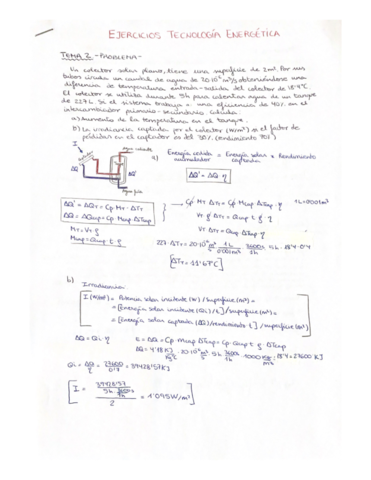 EJERCICIOS TECNOLOGÍA ENERGÉTICA
TEMA 2 - PROBLEMA -
Un colector solar plano, tiene una superficie de 2m². Por sus
tubos circula un caudal de agua de 20·10⁻⁶ m³/s obteniéndose una
diferencia de temperatura entrada-salida del colector de 18'4ºC
El colector se utiliza durante 5h para calentar agua de un tanque
de 227 L. Si el sistema trabaja a una eficiencia de 70% en el
intercambiador primario-secundario calcula:
a) aumento de la temperatura en el tanque.
b) La irradiancia captada por el colector (W/m²) si el factor de
pérdidas en el captador es del 30% (rendimiento 70%)
I
agua caliente
ΔQ
ΔQ'
agua fría
a) Energía cedida = Energía solar × Rendimiento
acumulador captada
ΔQ' = ΔQ η
ΔQ' = ΔQT = Cp MT · ΔTT
ΔQ = ΔQcap = Cp Mcap ΔTcap
MT = VT ρ
Mcap = Qcap t ρ
Cp MT ΔTT = Cp Mcap ΔTcap · η
VT ρ ΔTT = Qcap t ρ η
VT ΔTT = Qcap t ΔTcap η
[ΔTT = 11'67ºC]
b) Irradiancia
I (W/m²) = Potencia solar incidente (W) / superficie (m²) =
= [Energía solar incidente (Qi) / t] / superficie (m²) =
= [Energía solar captada (ΔQ) / rendimiento t] / superficie (m²)
ΔQ = Qi · η
ΔQ = Cp Mcap ΔTcap = Cp Qcap t ρ ΔTcap
Qi = ΔQ/η = 27600/0'7 = 39428'57 KJ
[I = 39428'57 / 5h 3600s/1h / 2 = 1'095W/m²]